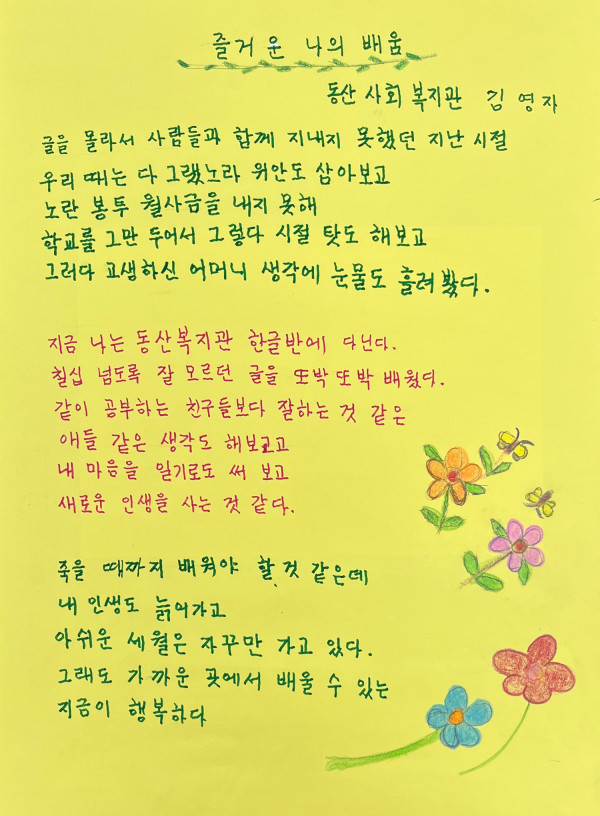 즐거운 나의 배움
동산 사회 복지관 김영자
글을 몰라서 사람들과 함께 지내지 못했던 지난 시절
우리 때는 다 그랬노라 위안도 삼아보고
노란 봉투 월사금을 내지 못해
학교를 그만 두어서 그렇다 시절 탓도 해보고
그러다 고생하신 어머니 생각에 눈물도 흘려 봤다.
지금 나는 동산복지관 한글반에 다닌다.
칠십 넘도록 잘 모르던 글을 또박 또박 배웠다.
같이 공부하는 친구들보다 잘하는 것 같은
애들 같은 생각도 해보고
내 마음을 일기로도 써 보고
새로운 인생을 사는 것 같다.
죽을 때까지 배워야 할 것 같은데
내 인생도 늙어가고
아쉬운 세월은 자꾸만 가고 있다.
그래도 가까운 곳에서 배울 수 있는
지금이 행복하다